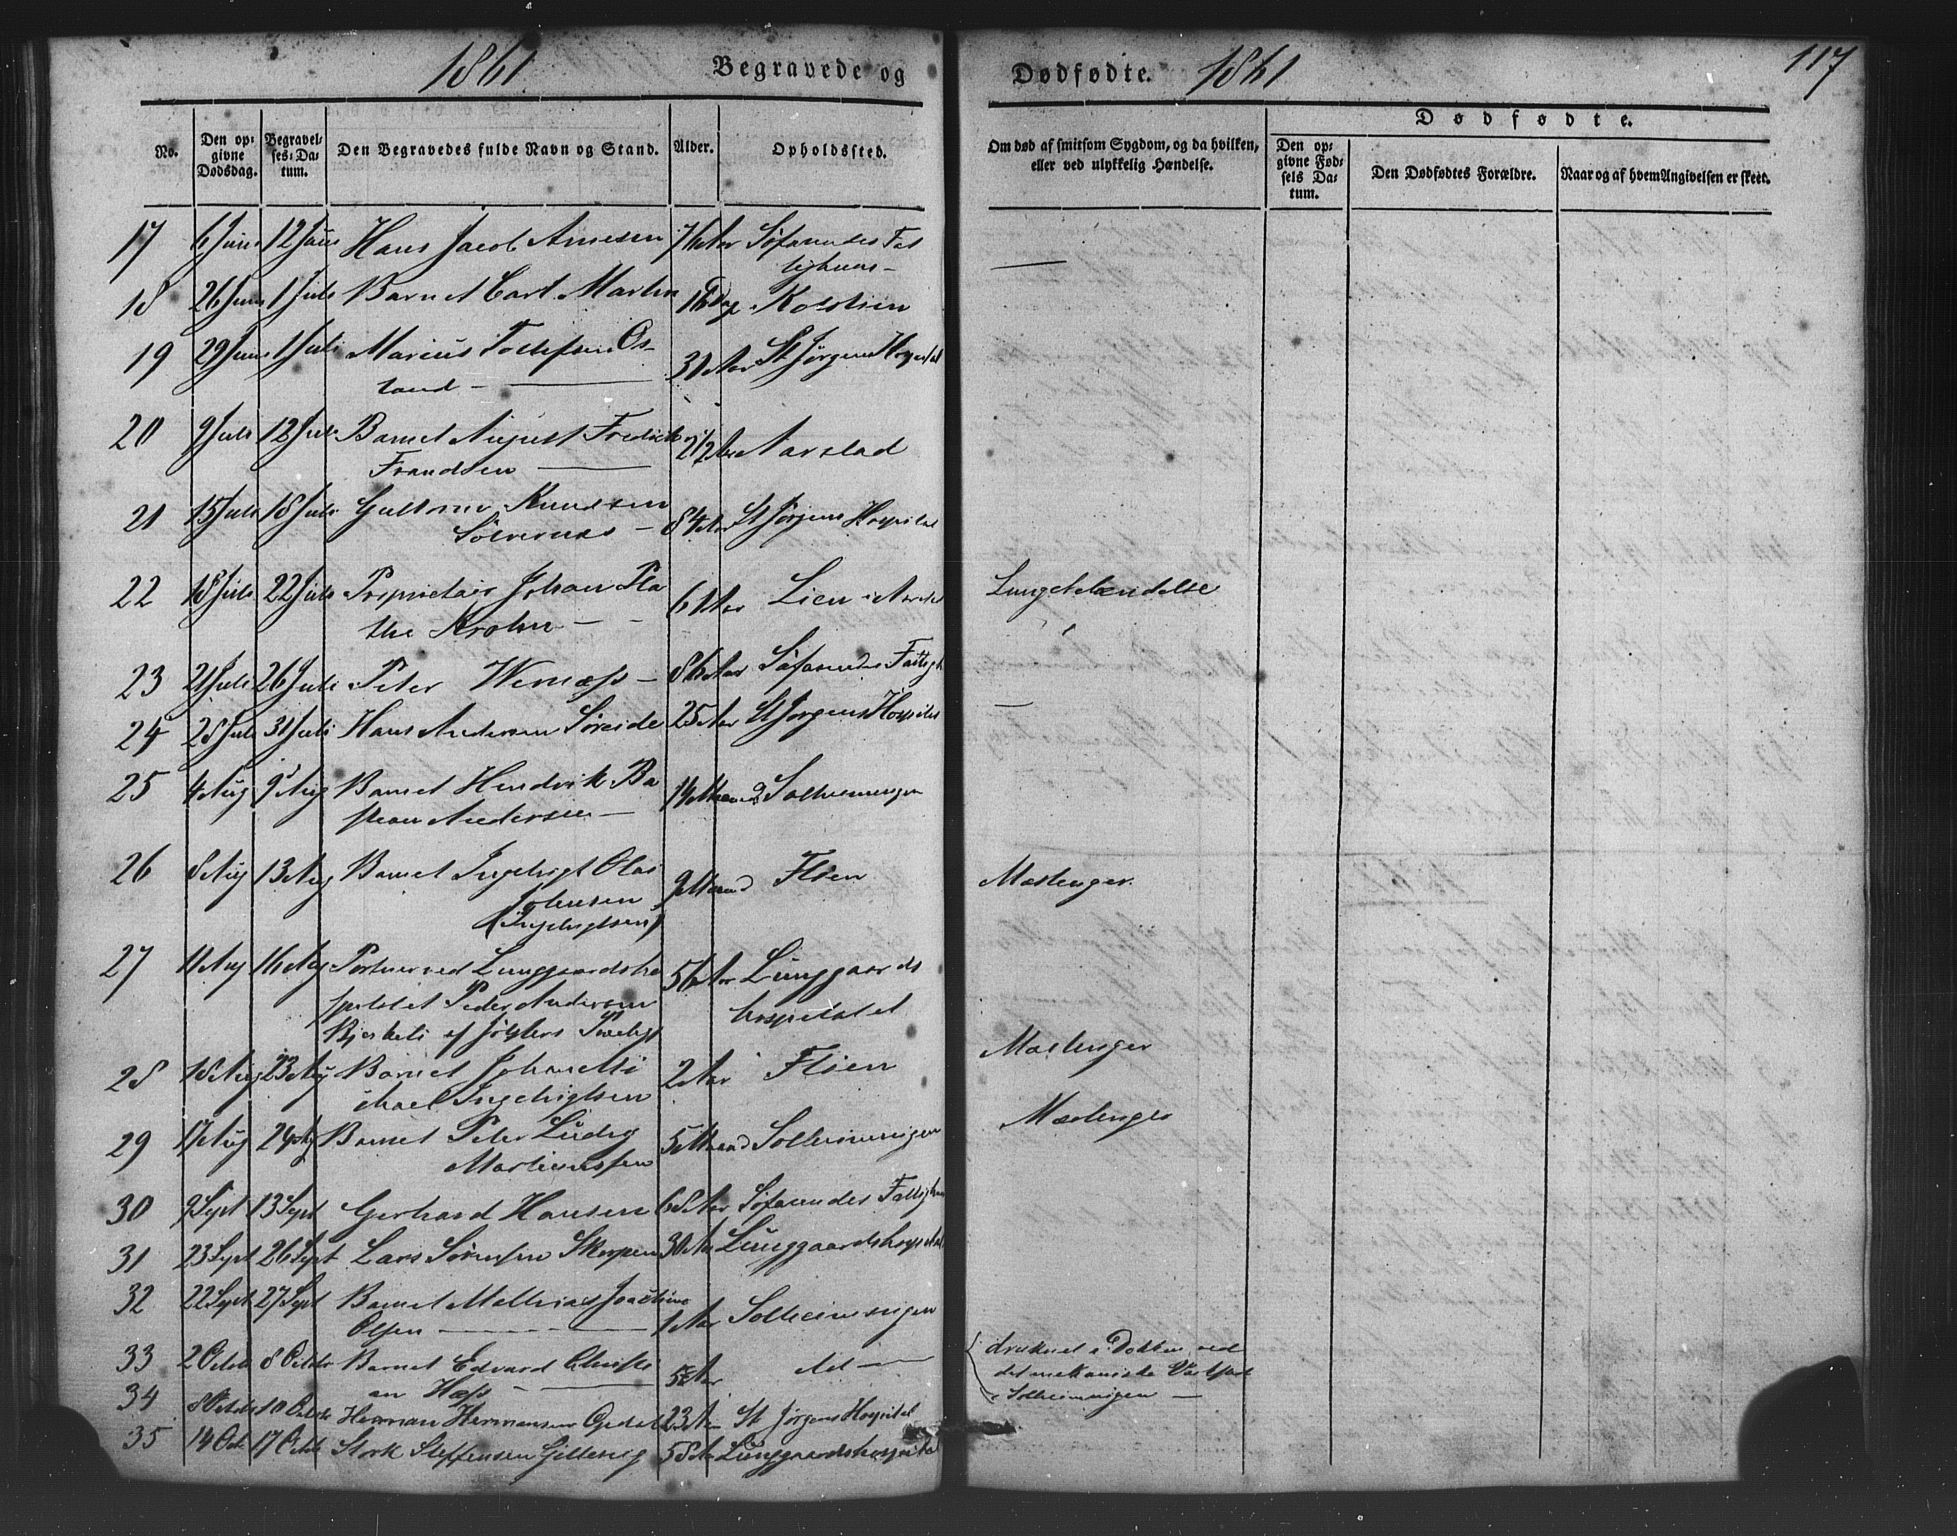 1861 Begravede og
Dødfødte. 1861
117
No.
Den op-
givne
Dødsdag.
Begravel-
ses-Da-
tum.
Den Begravedes fulde Navn og Stand.
Alder.
Opholdssted.
Om død af smitsom Sygdom, og da hvilken,
eller ved ulykkelig Hændelse.
Dødfødte.
Den op-
givne Fød-
sels Da-
tum.
Den Dødfødtes Forældre.
Naar og af hvem Angivelsen er skeet.
17 6 Juni 12 Juni Hans Jacob Arnesen 76 Aar Søfarendes Fat
tighuus -
18 26 Juni 1 Juli Barnet Carl Martin 16 Dage
19 29 Juni 1 Juli Marius Tollefsen Os-
land - 31 Aar St Jørgens Hospital
20 9 Juli 12 Juli Barnet August Fredrik
Frandsen 2 1/2 Aar Aarstad
21 15 Juli 18 Juli Guttorm Knudsen
84 Aar St Jørgens Hospital
22 18 Juli 22 Juli Proprietair Johan Pla
the Krohn - 61 Aar Lien i Aarstad Lungebetændelse
23 21 Juli 26 Juli Peter Wernøss - 86 Aar Søfarendes Fattigh
24 28 Juli 31 Juli Hans Andersen Søreide 25 Aar St Jørgens Hospital
25 4 Aug 9 Aug Barnet Hendrik Ba
stian Andersen - 14 Maaned Solheimsvigen
26 8 Aug 13 Aug Barnet Ingebrigt Olai
Johnsen
(Ingebrigtsen) 9 Maaned Fløen Mæslinger.
27 11 Aug 16 Aug Portner ved Lunggaardsho
spitalet Peder Andersen
Bjerkeli af Jølsters Prælegj 56 Aar Lunggaards
hospitalet
28 18 Aug 23 Aug Barnet Johan Mi
chael Ingebrigtsen 2 Aar Fløen Mæslinger
29 17 Aug 24 Aug Barnet Peter Ludvig
Martinussen 5 Maaned Solheimsvigen Mæslinger
30 9 Sept 13 Sept Gerhard Hansen 68 Aar Søfarendes Fattighuus
31 23 Sept 26 Sept Lars Sørensen Skorpen 30 Aar Lunggaardshospital
32 22 Sept 27 Sept Barnet Mathias Joachim
Olsen 1 Aar Solheimsvigen
33 2 Octbr 8 Octbr Barnet Edvard Christi
an Hæss - 5 Aar
druknet i Dokken ved
det mekaniske Værksted
i Solheimsvigen -
34 8 Octbr 10 Octbr Herman Hermansen 23 Aar St Jørgens Hospital
35 14 Oct 17 Octbr Stork Steffensen 58 Aar Lunggaardshospital